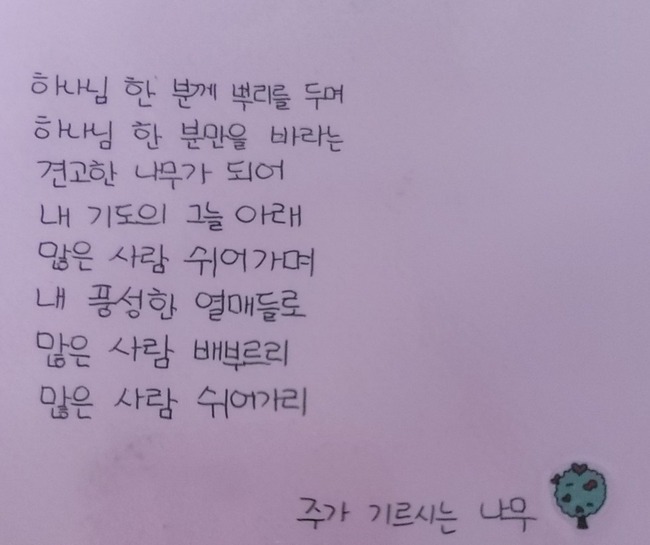 하나님 한 분께 뿌리를 두며
하나님 한 분만을 바라는
견고한 나무가 되어
내 기도의 그늘 아래
많은 사람 쉬어가며
내 풍성한 열매들로
많은 사람 배부르리
많은 사람 쉬어가리
주가 기르시는 나무